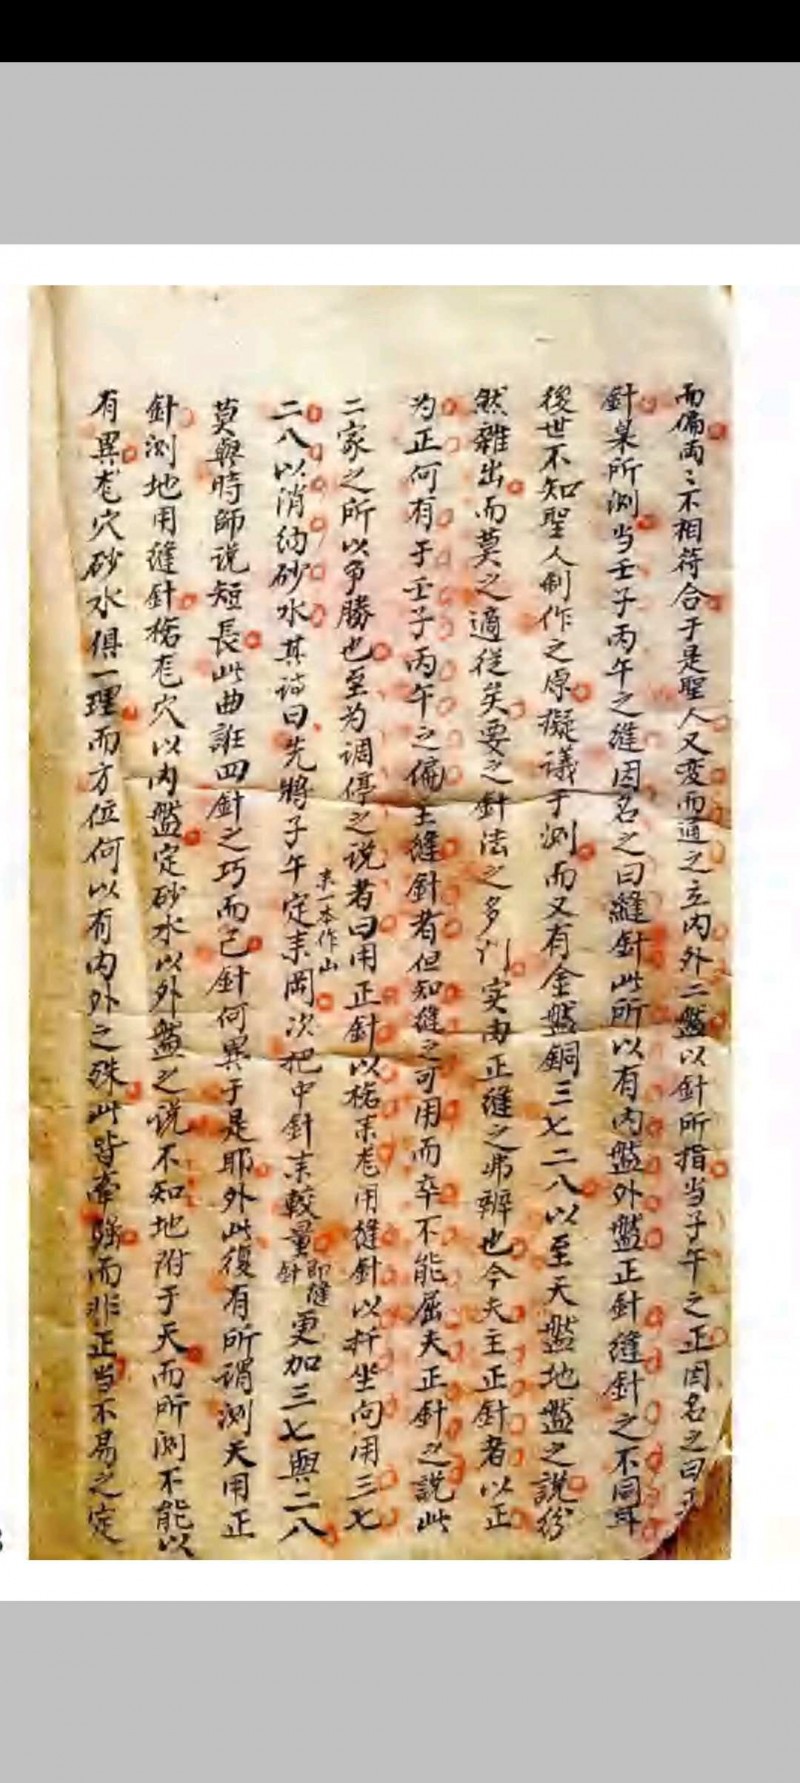 而偏兩々不相符合于是聖人又変而通之立内外二盤以針所指当子午之正因名之曰正
針臬所測当壬子丙午之縫因名之曰縫針此所以有内盤外盤正針縫針之不同耳
後世不知聖人制作之原擬議于測而又有金盤銅三七二八以至天盤地盤之說紛
然雜出而莫之適從矣要之針法之多訛实由正縫之弗辨也今夫主正針者以正
为正何有于壬子丙午之偏主縫針者但知縫之可用而卒不能屈夫正針之說此
二家之所以争勝也至为调停之说者曰用正針以格来龙用縫針以折坐向用三七
二八以消纳砂水其诗曰先將子午定来岡次把中針来較量即縫針更加三七與二八
来一本作山
莫與時師说短長此曲誑四針之巧而己針何異于是耶外此復有所謂测天用正
針测地用縫針格龙穴以内盤定砂水以外盤之说不知地附于天而所测不能以
有異龙穴砂水俱一理而方位何以有内外之殊此皆牵强而非正当不易之定